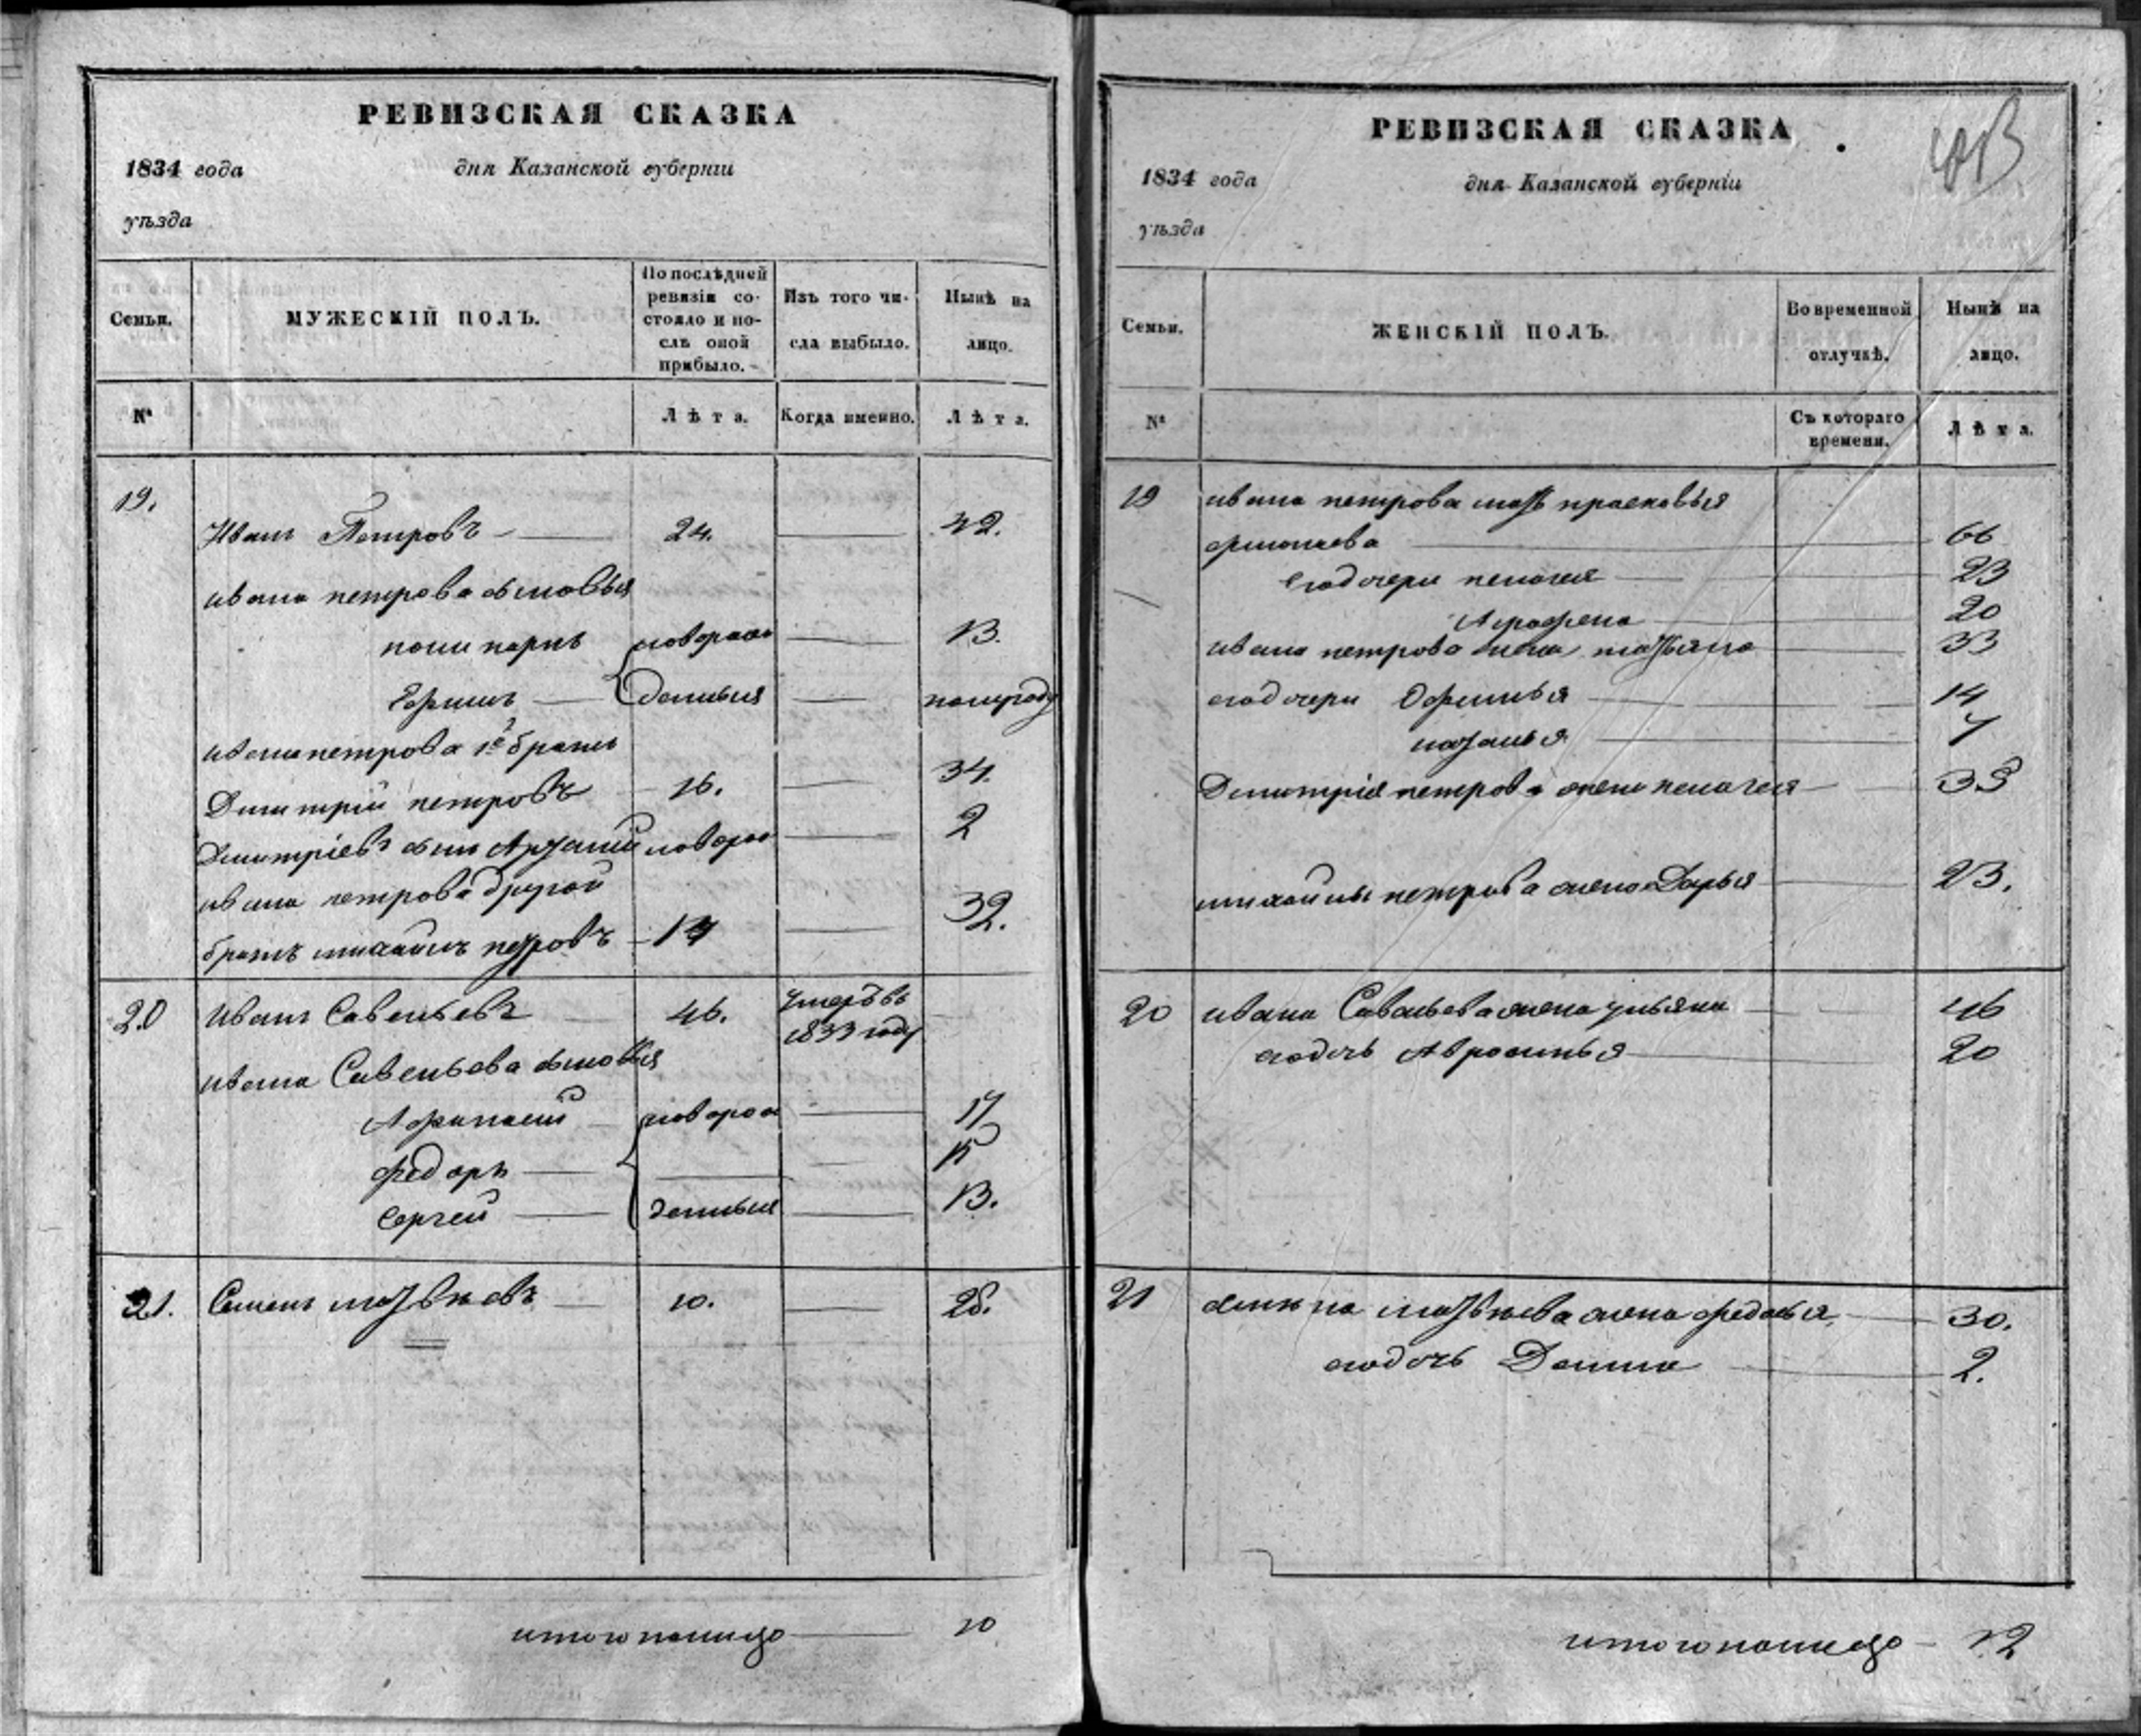 РЕВИЗСКАЯ СКАЗКА
1834 года дня Казанской губерніи
уѣзда
Семьи. МУЖЕСКІЙ ПОЛЪ. По послѣдней ревизіи состояло и послѣ оной прибыло. Изъ того числа выбыло. Нынѣ на лицо.
№ Лѣта. Когда именно. Лѣта.
19.
Иванъ Петровъ 24. 42.
ивана петрова сыновья
поликарпъ новорож 13.
Ефимъ денныя полугоду
ивана петрова 1й братъ
Дмитрій петровъ 16. 34.
Дмитріевъ сынъ новорож 2
ивана петрова другой
братъ михайлъ петровъ 14 32.
20 Иванъ Савельевъ 46. умеръ въ
1833 году
ивана Савельева сыновья
Афанасій новорож 17
федоръ 15
Сергей денныя 13.
21. Семенъ матвѣевъ 10. 28.
итого налицо 10
РЕВИЗСКАЯ СКАЗКА
183
1834 года дня Казанской губерніи
уѣзда
Семьи. ЖЕНСКІЙ ПОЛЪ. Во временной отлучкѣ. Нынѣ на лицо.
№ Съ котораго времени. Лѣта.
19 ивана петрова мать прасковья
66
его дочери пелагея 23
Аграфена 20
ивана петрова жена татьяна 33
его дочери Офимья 14
наталья 7
Дмитрія петрова жена пелагея 35
михайлы петрова жена Дарья 23.
20 ивана Савельева жена ульяна 46
его дочь Авросинья 20
21 матвѣева жена федосья 30.
его дочь Домна 2.
итого налицо 12